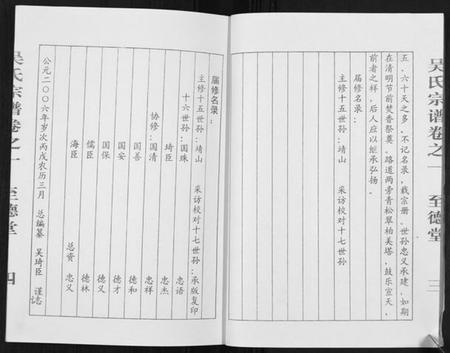 吴氏宗谱卷之一 至德堂 三
五、六十天之多，不记名录，载宗册。世孙忠义承建，如期
在清明节前焚香祭奠。路道两旁青松翠柏美塔，鼓乐宣天，
前者之祥，后人应以继承弘扬。
届修名录：
主修十五世孙：靖山 采访校对十七世孙
届修名录：
主修十五世孙：靖山 采访校对十七世孙：承版复印
十六世孙：国珠 忠语
琦臣 忠杰
协修：国清 忠祥
国善 德和
国安 德才
国保 德义
儒臣 德林
海臣 总资 忠义
公元二〇〇六年岁次丙戌农历三月 总编纂 吴琦臣 谨志
吴氏宗谱卷之一 至德堂 四